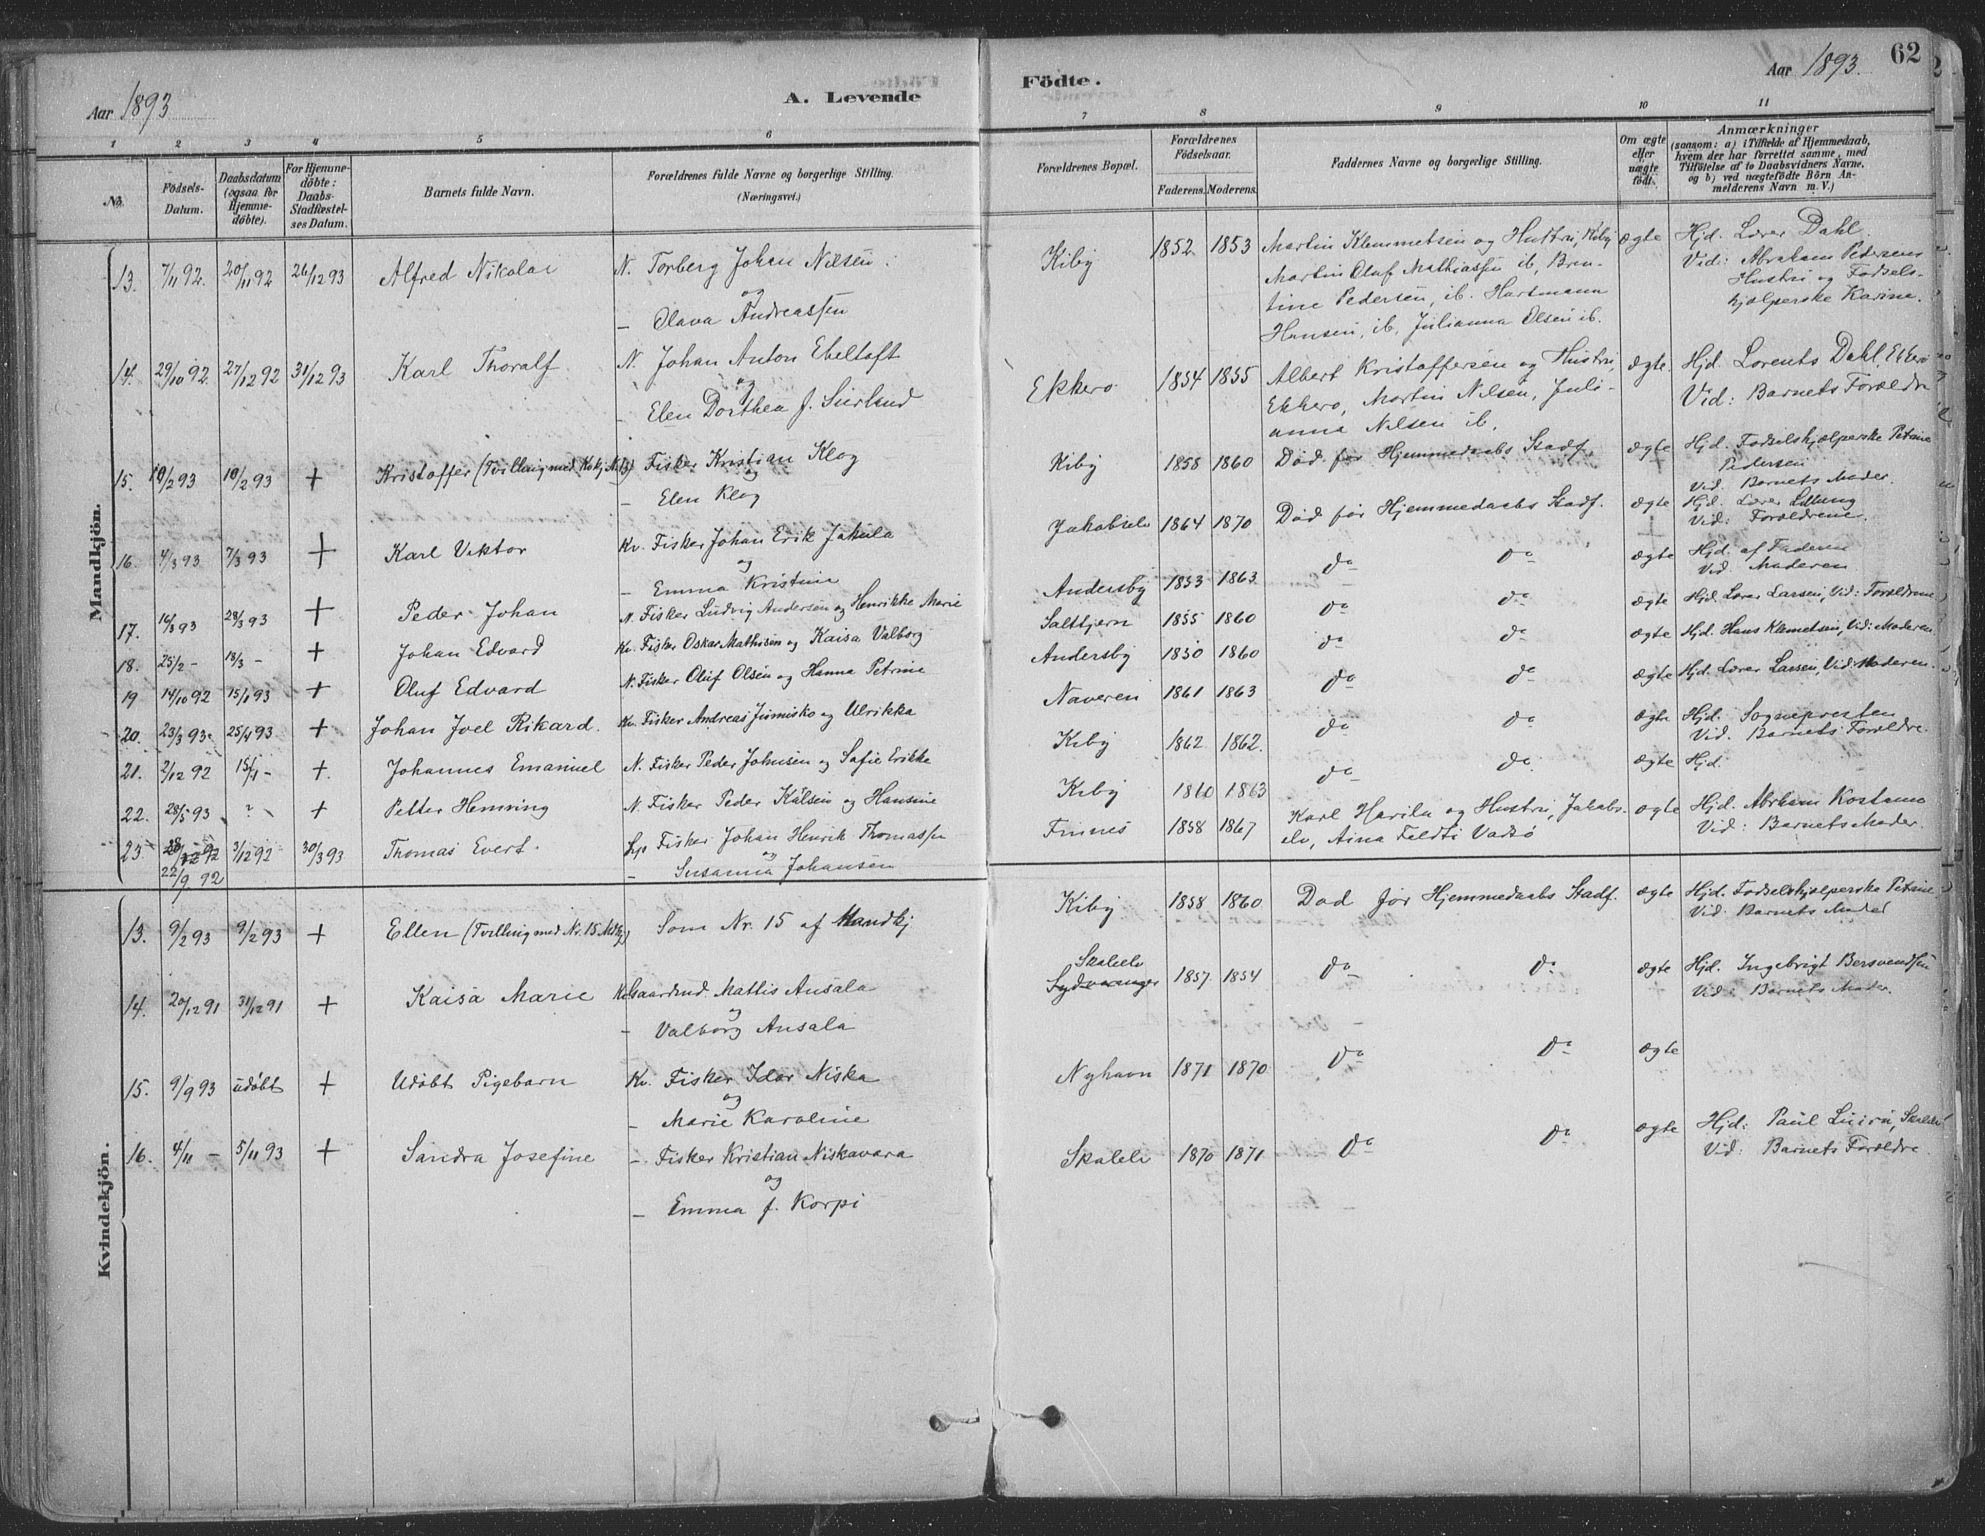 Aar 1893
A. Levende
1 2 3 4 5 6
No.
Fødsels-Datum.
Daabsdatum (ogsaa for Hjemmedöbte).
For Hjemmedöbte: Daabs-Stadfæstelses Datum.
Barnets fulde Navn.
Forældrenes fulde Navne og borgerlige Stilling.
(Næringsvei.)
Mandkjön.
13. 7/11 92. 20/11 92 26/12 93 Alfred Nikolai N. Torberg Johan Nilsen
og
— Olava Andreassen
14. 29/10 92. 27/12 92 31/12 93 Karl Thoralf N. Johan Anton Ebeltoft
og
— Elen Dorthea f. Sierlund
15. 10/2 93 10/2 93 + Kristoffer (Tvilling med Kvkj. N. 13) Fisker Kristian Klog
og
— Elen Klog
16. 4/3 93 7/3 93 + Karl Viktor Kv. Fisker Johan Erik Jakula
og
— Emma Kristine
17. 16/3 93 28/3 93 + Peder Johan N. Fisker Ludvig Andersen og Henrikke Marie
18. 25/2 — 13/3 — + Johan Edvard Kv. Fisker Oskar Mathisen og Kaisa Valborg
19 14/10 92 15/1 93 + Oluf Edvard N. Fisker Oluf Olsen og Hanna Petrine
20. 23/3 93. 25/4 93 + Johan Joel Rikard. Kv. Fisker Andreas Junisko og Ulrikka
21. 2/12 92 15/1 — + Johannes Emanuel N. Fisker Peder Johnsen og Sofie Erikke
22. 28/5 93 ? + Petter Henning N. Fisker Peder Kålsen og Hansine
23 3/12 92 30/3 93 Thomas Evert. Lp Fisker Johan Henrik Thomassen
22/9 92
og
— Susanna Johansen
Kvindekjön.
13. 9/2 93 9/2 93 + Ellen (Tvilling med Nr. 15 Mdkj) Som Nr. 15 af Mandkj
14. 20/12 91 31/12 91 + Kaisa Marie Kv. Gaardmd. Mattis Ansala
og
— Valborg Ansala
15. 9/9 93 udøbt + Udøbt Pigebarn Kv. Fisker Idor Niska
og
— Marie Karoline
16. 4/11 — 5/11 93 + Sandra Josefine — Fisker Kristian Niskavara
og
— Emma f. Korpi
Födte.
Aar 1893. 62
7 8 9 10 11
Forældrenes Bopæl.
Forældrenes Födselsaar.
Faderens. Moderens.
Faddernes Navne og borgerlige Stilling.
Om ægte eller uægte födt.
Anmærkninger
(saasom: a) i Tilfælde af Hjemmedaab, hvem der har forrettet samme, med Tilföielse af to Daabsvidners Navne, og b) ved uægtefödte Börn Anmelderens Navn m. V.)
Kiby 1852 1853 Martin Klemmetsen og Hustru, Kiby ægte Hjd. Lærer Dahl.
Martin Olaf Mathiassen ib, Bren- Vid: Abraham Pedersens
tine Pedersen, ib. Hartmann Hustru og Fødsels-
Hansen, ib, Julianna Olsen ib. hjælperske Karine.
Ekkerø 1854 1855 Albert Kristoffersen og Hustru, ægte. Hjd. Lorents Dahl, Ekkerø
Ekkerø, Martin Nilsen, Juli- Vid: Barnets Forældre
anna Nilsen ib.
Kiby 1858 1860 Død før Hjemmedaabs Stadf. ægte Hjd. Fødselshjælperske Petrine
Pedersen
Vid. Barnets Moder.
Jakobselv 1864 1870 Død før Hjemmedaabs Stadf. ægte Hjd. Lærer
Vid: Forældrene.
Andersby 1853 1863 do do ægte Hjd. af Faderen
Vid. Moderen
Saltbjern 1855 1860 do do ægte Hjd. Lærer Larsen, Vid: Forældrene
Andersby 1850 1860 do do ægte Hjd. Hans Klemetsen, Vid: Moderen
Naveren 1861 1863 do do ægte Hjd. Lærer Larsen, Vid: Moderen.
Kiby 1862 1862. do do ægte Hjd. Sognepresten
Vid. Barnets Forældre.
Kiby 1860 1863 do do ægte Hjd.
Finnes 1858 1867 Karl Harila og Hustru, Jakobs- ægte Hjd. Abrham Kostamo
elv, Aina Feldti Vadsø Vid: Barnets Moder.
Kiby 1858 1860 Død før Hjemmedaabs Stadf. ægte Hjd. Fødselshjælperske Petrine
Vid. Barnets Moder
Skalelv
Sydvaranger 1857 1854 do do ægte Hjd. Ingebrigt Bersvendsen
Vid: Barnets Moder.
Nyhavn 1871 1870 do do ægte
Skalelv 1870 1871 do do ægte Hjd: Paul Luiru, Skalelv
Vid: Barnets Forældre.